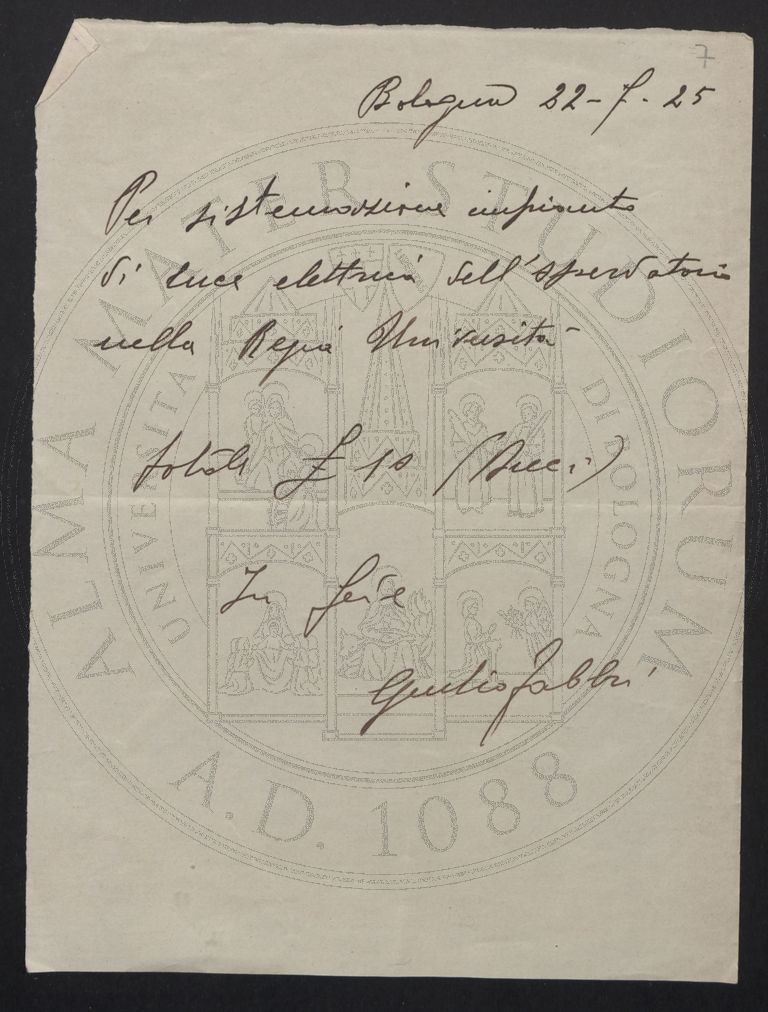 7
Bologna 22-7-25
Per sistemazione impianto
di luce elettrica dell'
nella Regia Università
totale £ 10 (dieci)
In fede
Giulio Fabbri
ALMA MATER STUDIORUM
UNIVERSITÀ DI BOLOGNA
A.D. 1088